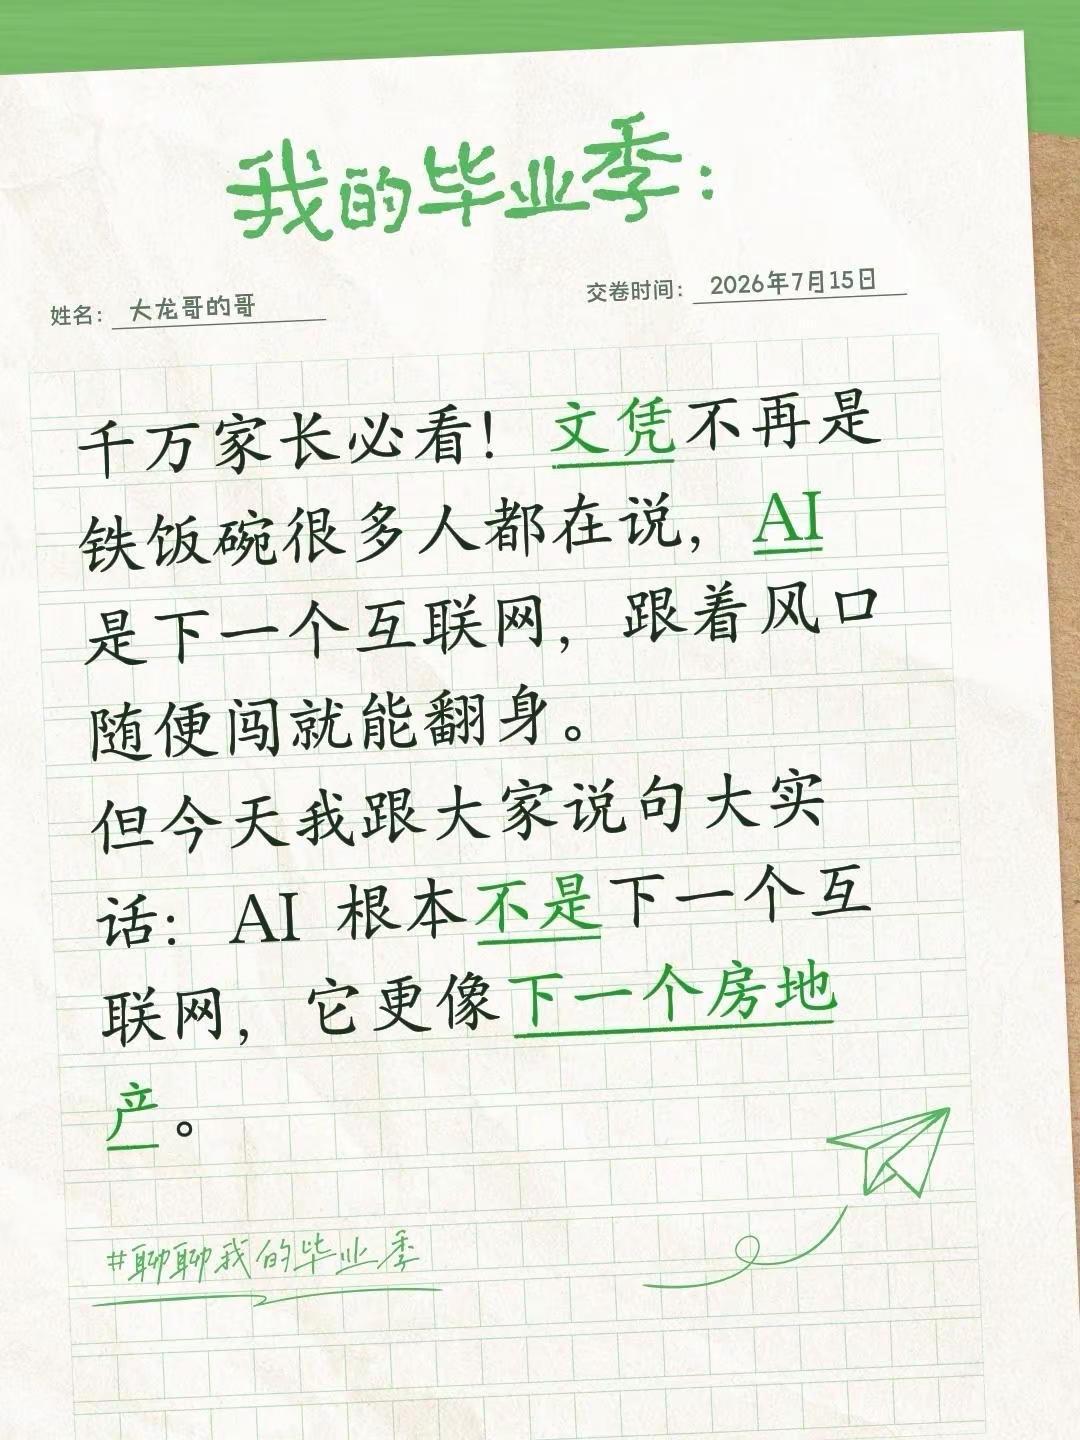 我的毕业季:
姓名: 大龙哥的哥
交卷时间: 2026年7月15日
千万家长必看！文凭不再是
铁饭碗很多人都在说，AI
是下一个互联网，跟着风口
随便闯就能翻身。
但今天我跟大家说句大实
话：AI 根本不是下一个互
联网，它更像下一个房地
产。
#聊聊我的毕业季